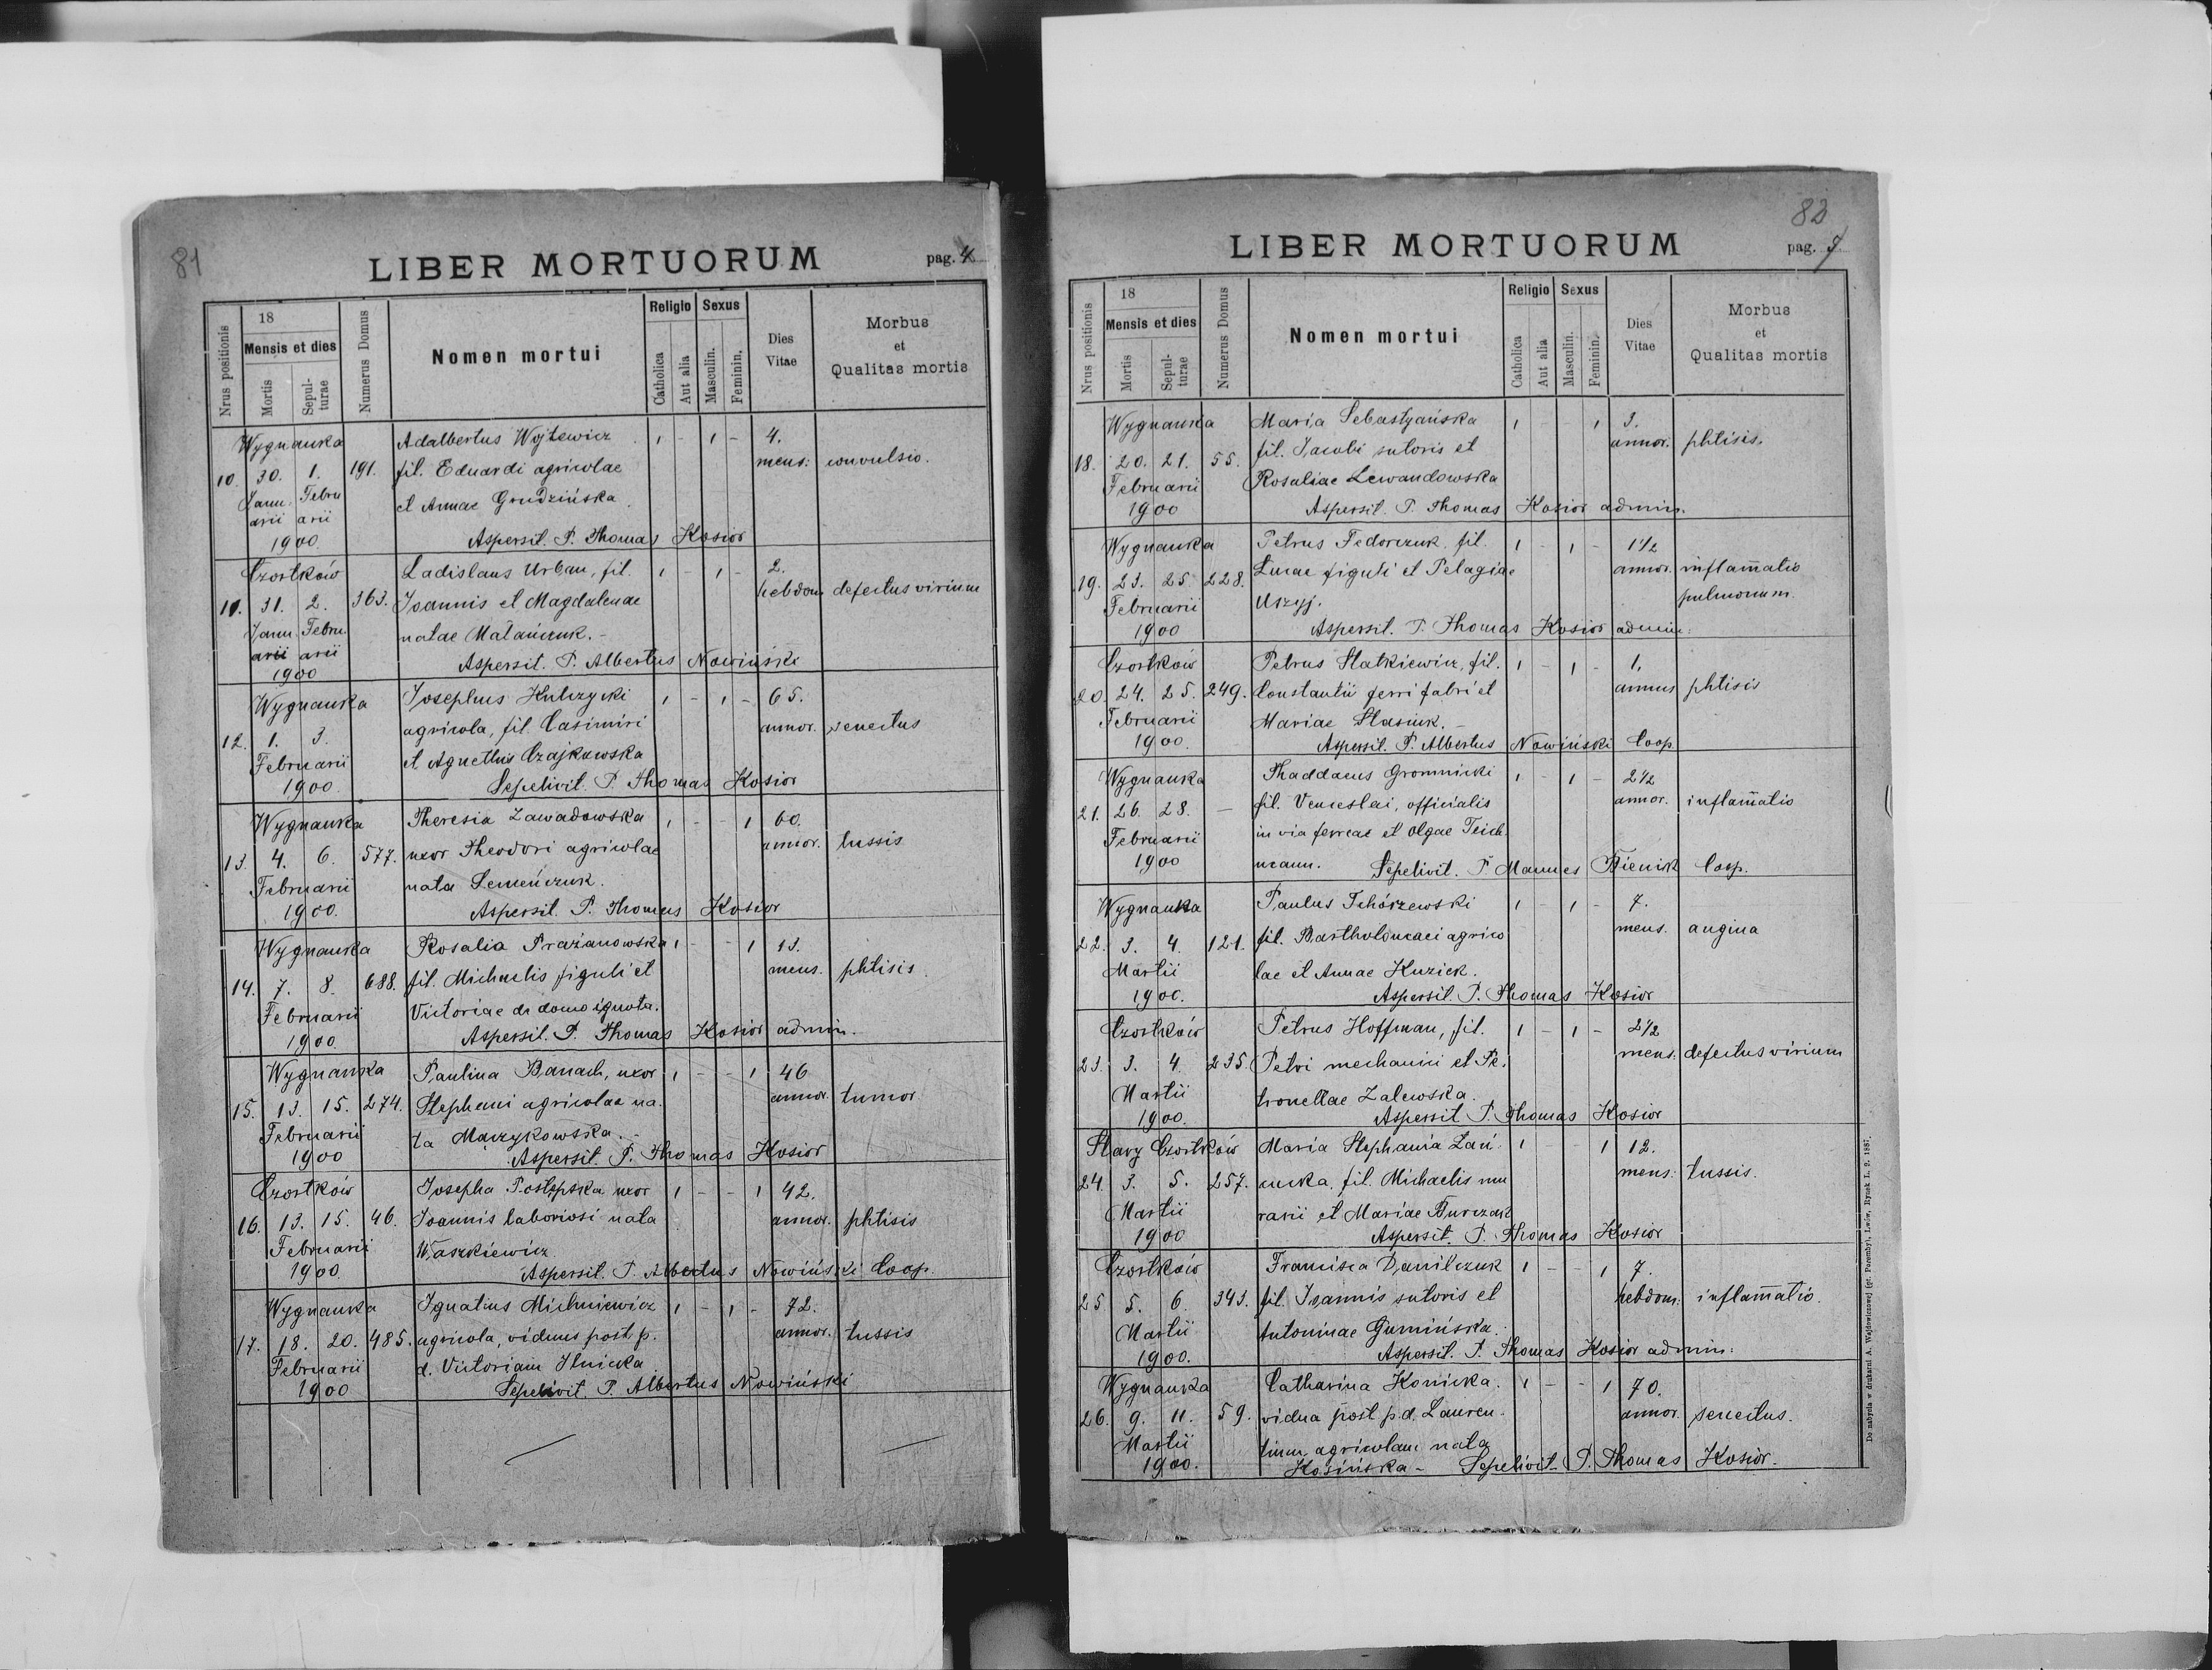 81
LIBER MORTUORUM
pag. 4
Nrus positionis
18
Mensis et dies
Mortis
Sepul-
turae
Numerus Domus
Nomen mortui
Religio
Catholica
Aut alia
Sexus
Masculin.
Feminin.
Dies
Vitae
Morbus
et
Qualitas mortis
Wygnanka Adalbertus Wojtewicz 1 - 1 - 4.
10. 30. 1. 191. fil. Eduardi agricolae mens: convulsio.
Janu Febru et Annae Grudzińska
arii arii
1900. Aspersit. P. Thomas Kosior
Czortków Ladislaus Urban, fil. 1 - 1 - 2.
11. 31. 2. 363. Joannis et Magdalenae hebdom. defectus virium
Janu. Febru. natae Matańczuk. -
arii arii Aspersit. P. Albertus Nowiński
1900
Wygnanka Josephus Kulczycki 1 - 1 - 65.
12. 1. 3. agricola, fil. Casimiri annor. senectus
Februarii et Agnethis Czajkowska
1900. Sepelivit. P. Thomas Kosior
Wygnanka Theresia Zawadowska 1 - - 1 60.
13. 4. 6. 577. uxor Theodori agricolae annor. tussis
Februarii nata Semeńczuk.
1900. Aspersit. P. Thomas Kosior
Wygnanka Rosalia Prażanowska 1 - - 1 13.
14. 7. 8. 688. fil. Michaelis figuli et mens. phtisis.
Februarii Victoriae de domo ignota.
1900 Aspersit. P. Thomas Kosior admin.
Wygnanka Paulina Banach, uxor 1 - - 1 46
15. 13. 15. 274. Stephani agricolae na- annor. tumor
Februarii ta Maczykowska. -
1900 Aspersit. P. Thomas Kosior
Czortków Josepha Postępska uxor 1 - - 1 42.
16. 13. 15. 46. Joannis laboriosi nata annor. phtisis
Februarii Waszkiewicz
1900. Aspersit. P. Albertus Nowiński Coop.
Wygnanka Ignatius Michniewicz 1 - 1 - 72.
17. 18. 20. 485. agricola, viduus post p. annor. tussis
Februarii d. Victoriam Ilnicka
1900 Sepelivit. P. Albertus Nowiński
82
LIBER MORTUORUM
pag. 5
Nrus positionis
18
Mensis et dies
Mortis
Sepul-
turae
Numerus Domus
Nomen mortui
Religio
Catholica
Aut alia
Sexus
Masculin.
Feminin.
Dies
Vitae
Morbus
et
Qualitas mortis
Wygnanka Maria Sebastyańska 1 - - 1 3.
18. 20. 21. 55. fil. Jacobi sutoris et annor. phtisis.
Februarii Rosaliae Lewandowska
1900 Aspersit. P. Thomas Kosior admin.
Wygnanka Petrus Fedorczuk, fil. 1 - 1 - 1 1/2
19. 23. 25 228. Lucae figuli et Pelagiae annor. inflam̄atio
Februarii pulmonum.
1900 Aspersit. P. Thomas Kosior admin:
Czortków Petrus Statkiewicz, fil. 1 - 1 - 1.
20. 24. 25. 249. Constantii ferri fabri et annus phtisis
Februarii Mariae Stasiuk. -
1900. Aspersit. P. Albertus Nowiński Coop.
Wygnanka Thaddaeus Gromnicki 1 - 1 - 2 1/2
21. 26 28. - fil. Venceslai, officialis annor. inflam̄atio
Februarii in via ferreae et Olgae Teich-
1900 mann. Sepelivit. P Mannes Bieniek Coop.
Wygnanka Paulus Tchórzewski 1 - 1 - 7.
22. 3. 4. 121. fil. Bartholomaei agrico mens. angina
Martii lae et Annae Kuziek.
1900. Aspersit. P. Thomas Kosior
Czortków Petrus Hoffman, fil. 1 - 1 - 2 1/2
23. 3. 4. 235. Petri mechanici et Pe- mens: defectus virium
Martii tronellae Zalewska.
1900. Aspersit P. Thomas Kosior
Stary Czortków Maria Stephania Łań- 1 - 1 12.
24. 3. 5. 257. cucka, fil. Michaelis mu mens: tussis.
Martii rarii et Mariae Burczak
1900 Aspersit. P. Thomas Kosior
Czortków Francisca Danilczuk 1 - - 1 7.
25 5. 6. 343. fil. Joannis sutoris et hebdom: inflam̄atio.
Martii Antoninae Gumińska.
1900. Aspersit. P. Thomas Kosior admin:
Wygnanka Catharina Konicka. 1 - - 1 70.
26. 9. 11. 59. vidua post p.d. Lauren- annor. senectus.
Martii tium, agricolam nata
1900. Kosińska - Sepelivit P. Thomas Kosior.
Do nabycia w drukarni A. Wajdowiczowej (gt. Poremby), Lwów, Rynek L. 9. 1887.